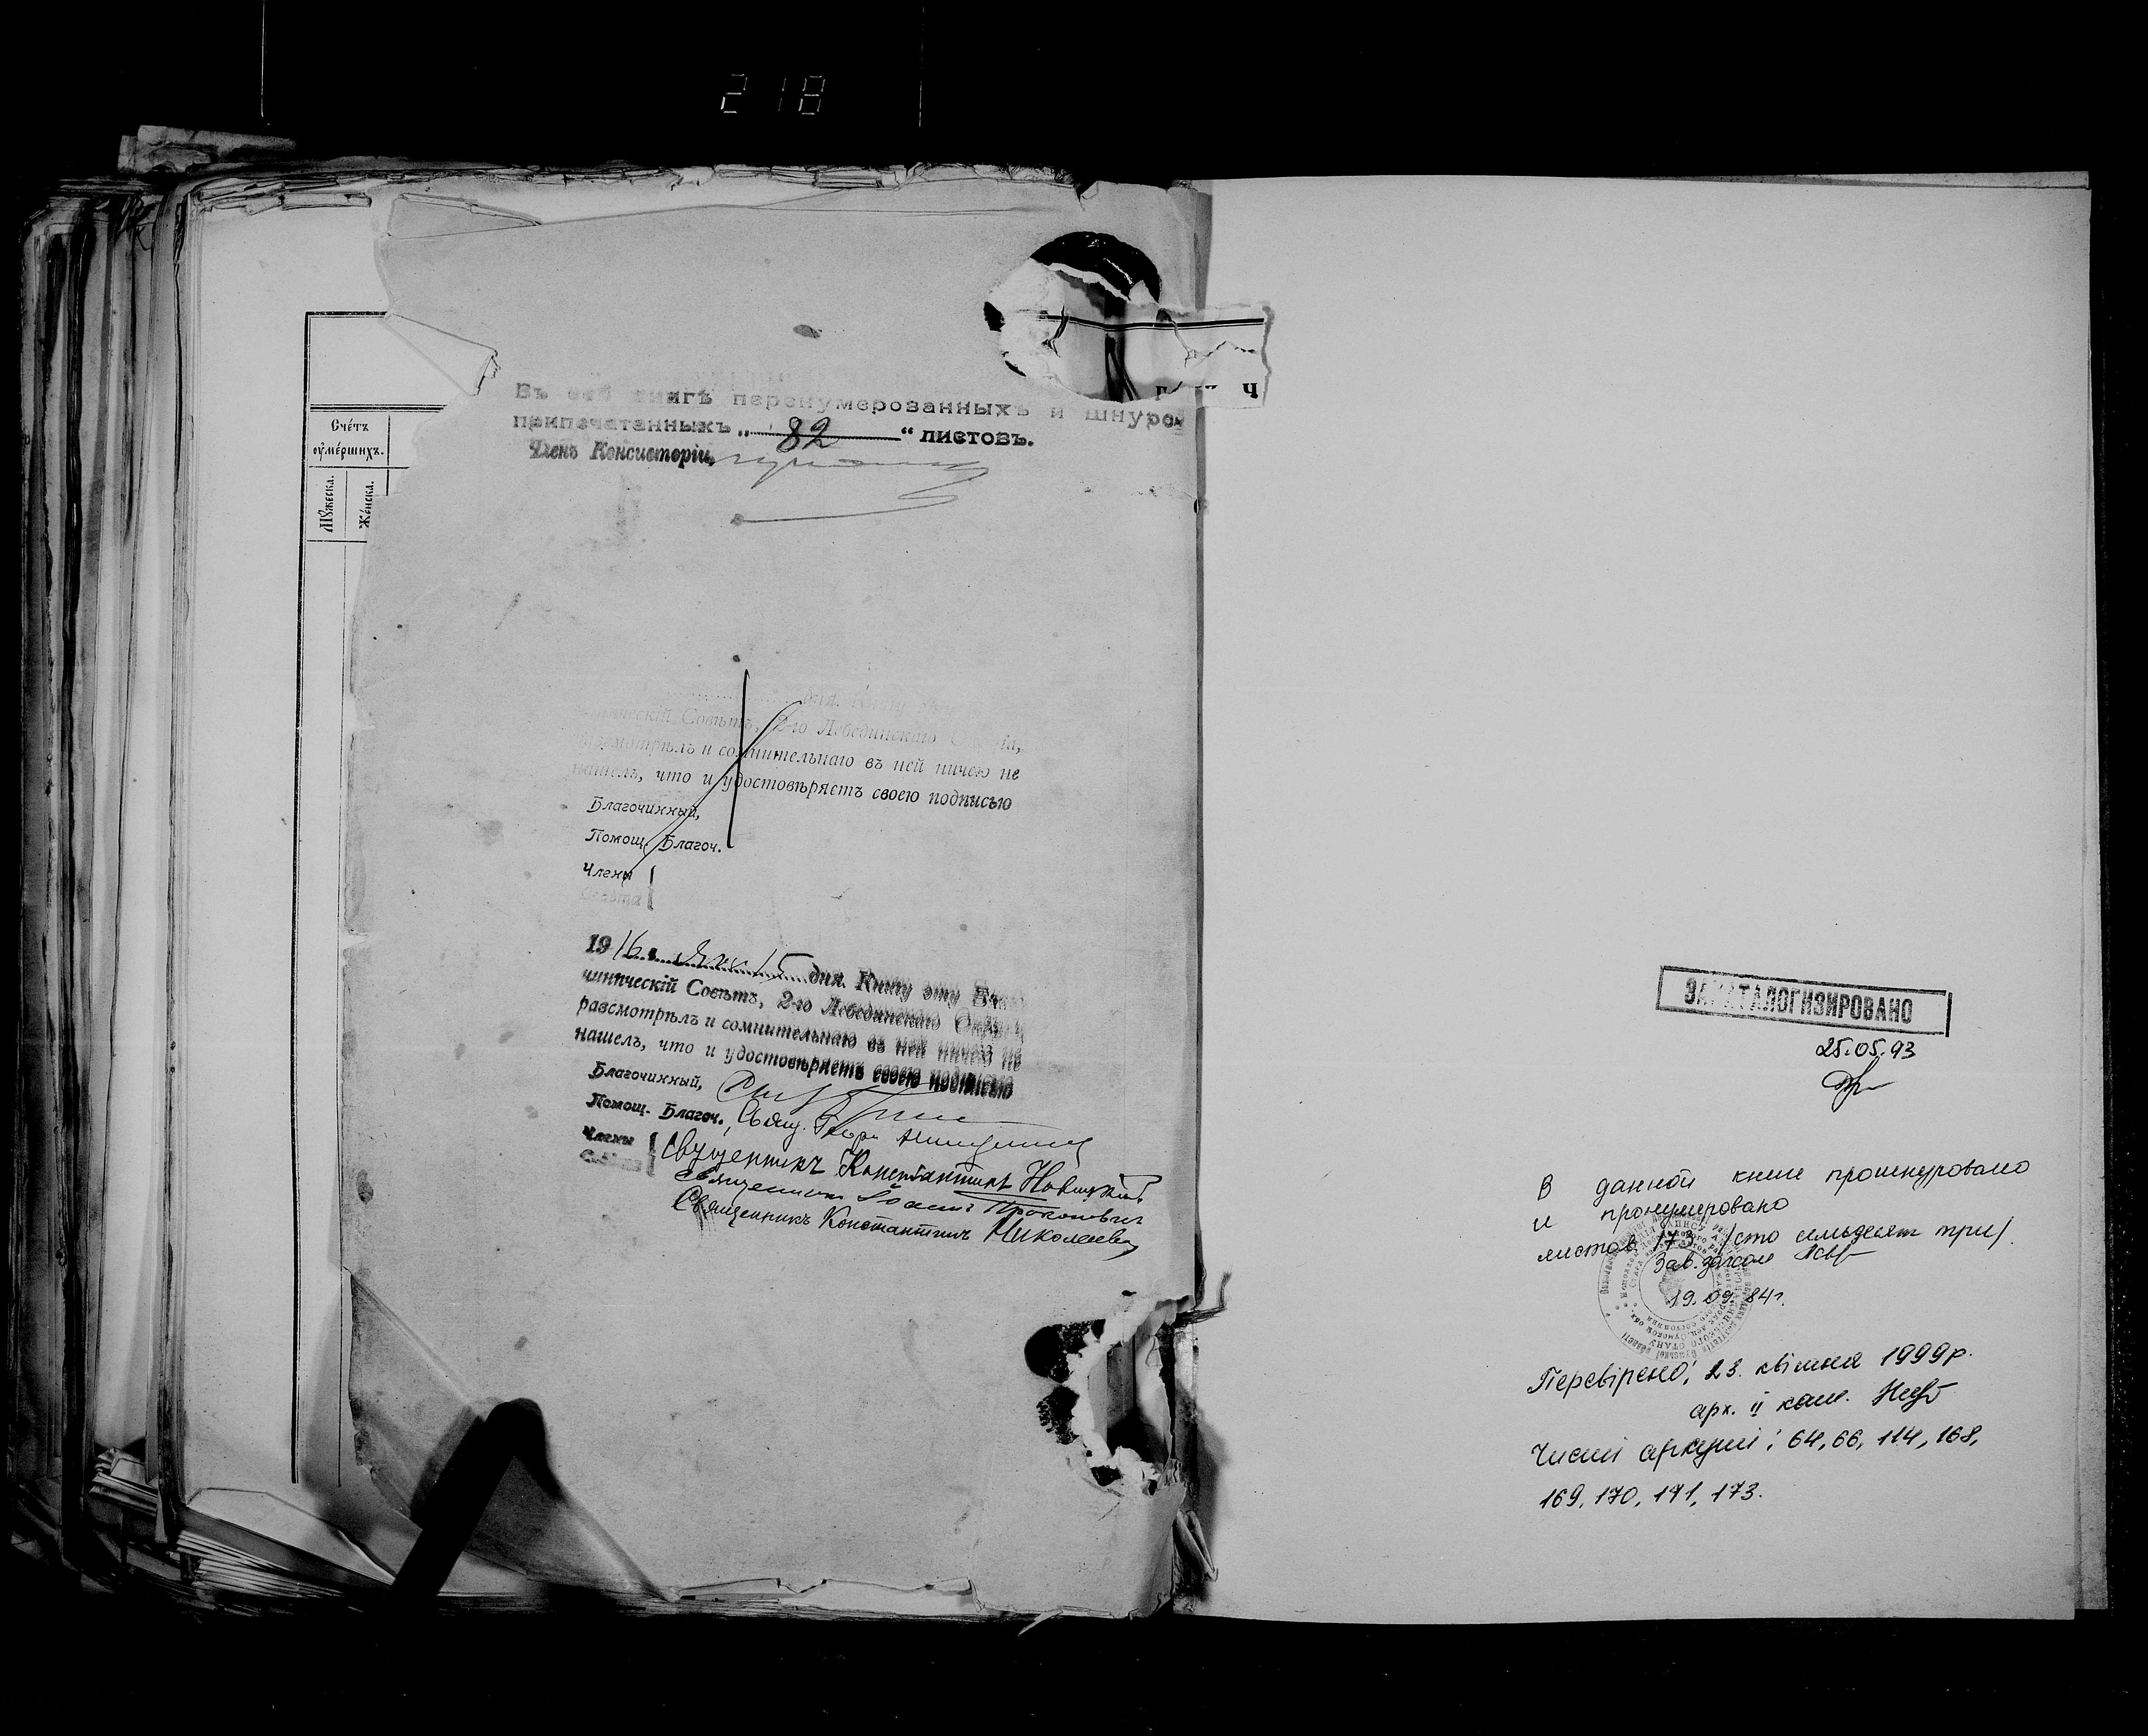 218
Счётъ
оумершихъ.
Мужеска.
Женска.
Въ сей книгѣ перенумерованныхъ и шнуро
припечатанныхъ „ 82 “ листовъ.
Членъ Консисторіи,
дня. Книгу
Совѣтъ, 2-го Лебединскаго
и сомнительнаго въ ней ничего не
нашелъ, что и удостовѣряетъ своею подписью
Благочинный,
Помощ. Благоч.
Члены
Совѣта
1916 г. 15 дня. Книгу эту
чинническій Совѣтъ, 2-го Лебединскаго Округа
разсмотрѣлъ и сомнительнаго въ ней ничего не
нашелъ, что и удостовѣряетъ своею подписью
Благочинный,
Помощ. Благоч., Свящ.
Члены
Совѣта
Священникъ Константинъ Новицкій
Священникъ Іоаннъ Прокоповичъ
Священникъ Константинъ Николаевъ
Ч
ЗАКАТАЛОГИЗИРОВАНО
25.05.93
В данной книге прошнуровано
и пронумеровано
листов 173 /сто семьдесят три/.
Зав. загсом
19.09.84г.
Перевірено: 23 квітня 1999р.
арх. II кат.
Чисті аркуші: 64, 66, 114, 168,
169, 170, 171, 173.